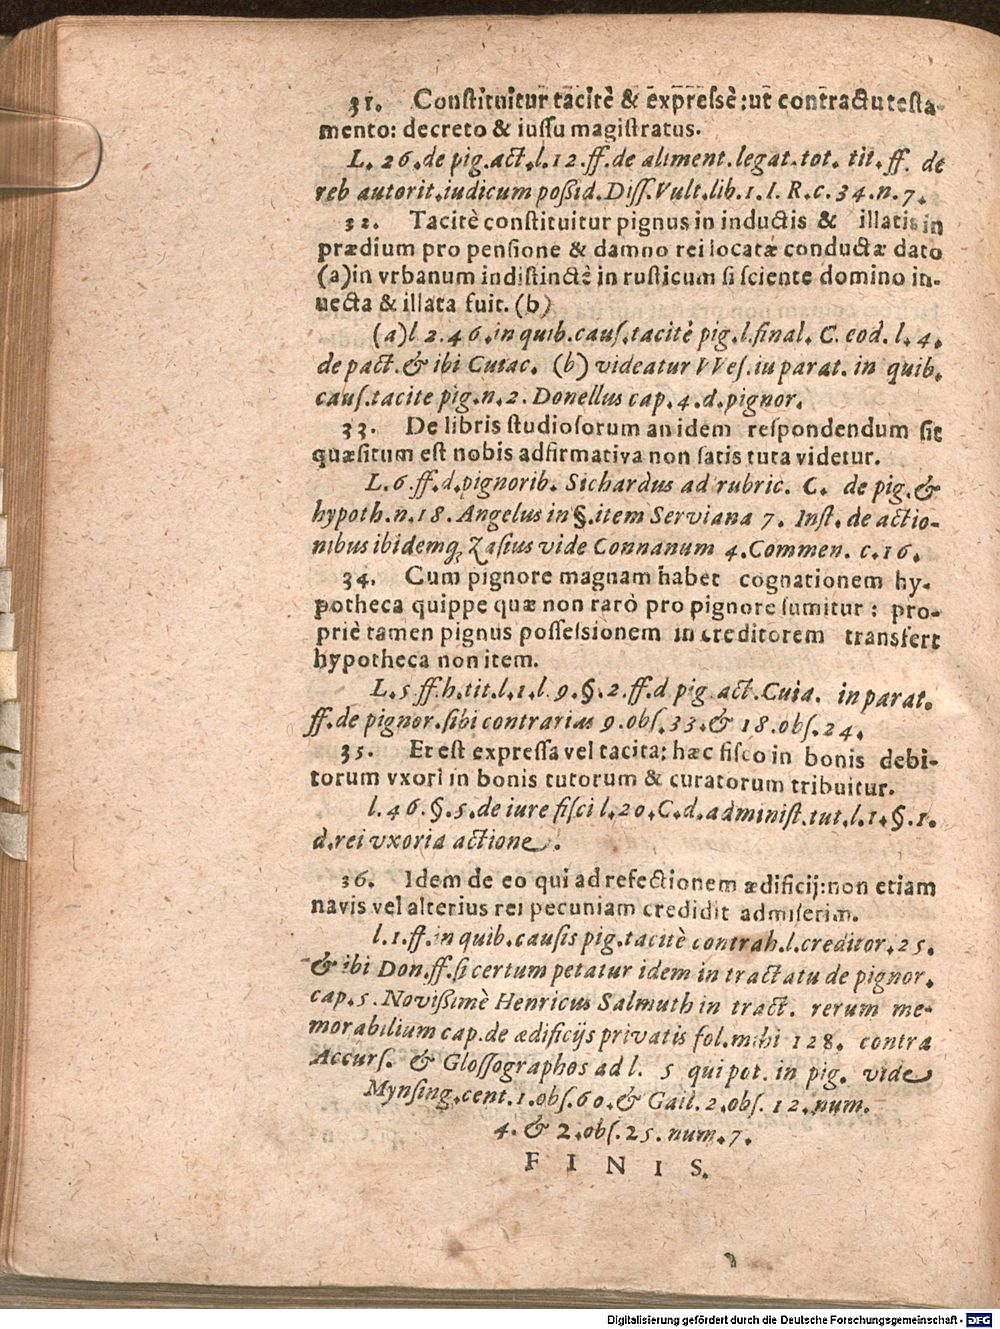 31. Constituitur tacitè & expressè: ut contractu testa-
mento: decreto & iussu magistratus.
L. 26. de pig. act. l. 12. ff. de aliment. legat. tot. tit. ff. de
reb autorit. iudicum poßid. Diss. Vult. lib. 1. I. R. c. 34. n. 7.
32. Tacitè constituitur pignus in inductis & illatis in
prædium pro pensione & damno rei locatæ conductæ dato
(a) in vrbanum indistinctè in rusticum si sciente domino in-
uecta & illata fuit. (b)
(a) l 2. 46. in quib. caus. tacitè pig. l. final. C. eod. l. 4.
de pact. & ibi Cuiac. (b) videatur VVes. in parat. in quib.
caus. tacite pig. n. 2. Donellus cap. 4. d. pignor.
33. De libris studiosorum an idem respondendum sit
quæsitum est nobis adfirmativa non satis tuta videtur.
L. 6. ff. d. pignorib. Sichardus ad rubric. C. de pig. &
hypoth. n. 18. Angelus in §. item Serviana 7. Inst. de actio-
nibus ibidemq; Zasius vide Connanum 4. Commen. c. 16.
34. Cum pignore magnam habet cognationem hy-
potheca quippe quæ non rarò pro pignore sumitur: pro-
priè tamen pignus possessionem in creditorem transfert
hypotheca non item.
L. 5 ff. h. tit. l. 1. l. 9. §. 2. ff. d pig. act. Cuia. in parat.
ff. de pignor. sibi contrarius 9. obs. 33. & 18. obs. 24.
35. Et est expressa vel tacita: hæc fisco in bonis debi-
torum vxori in bonis tutorum & curatorum tribuitur.
l. 46. §. 5. de iure fisci l. 20. C. d. administ. tut. l. 1. §. 1.
d. rei vxoria actione.
36. Idem de eo qui ad refectionem ædificij: non etiam
navis vel alterius rei pecuniam credidit admiserim.
l. 1. ff. in quib. causis pig. tacitè contrah. l. creditor. 25.
& ibi Don. ff. si certum petatur idem in tractatu de pignor.
cap. 5. Novißimè Henricus Salmuth in tract. rerum me-
morabilium cap. de ædificijs privatis fol. mihi 128. contra
Accurs. & Glossographos ad l. 5 qui pot. in pig. vide
Mynsing. cent. 1. obs. 60. & Gail. 2. obs. 12. num.
4. & 2. obs. 25. num. 7.
FINIS.
Digitalisierung gefördert durch die Deutsche Forschungsgemeinschaft - DFG